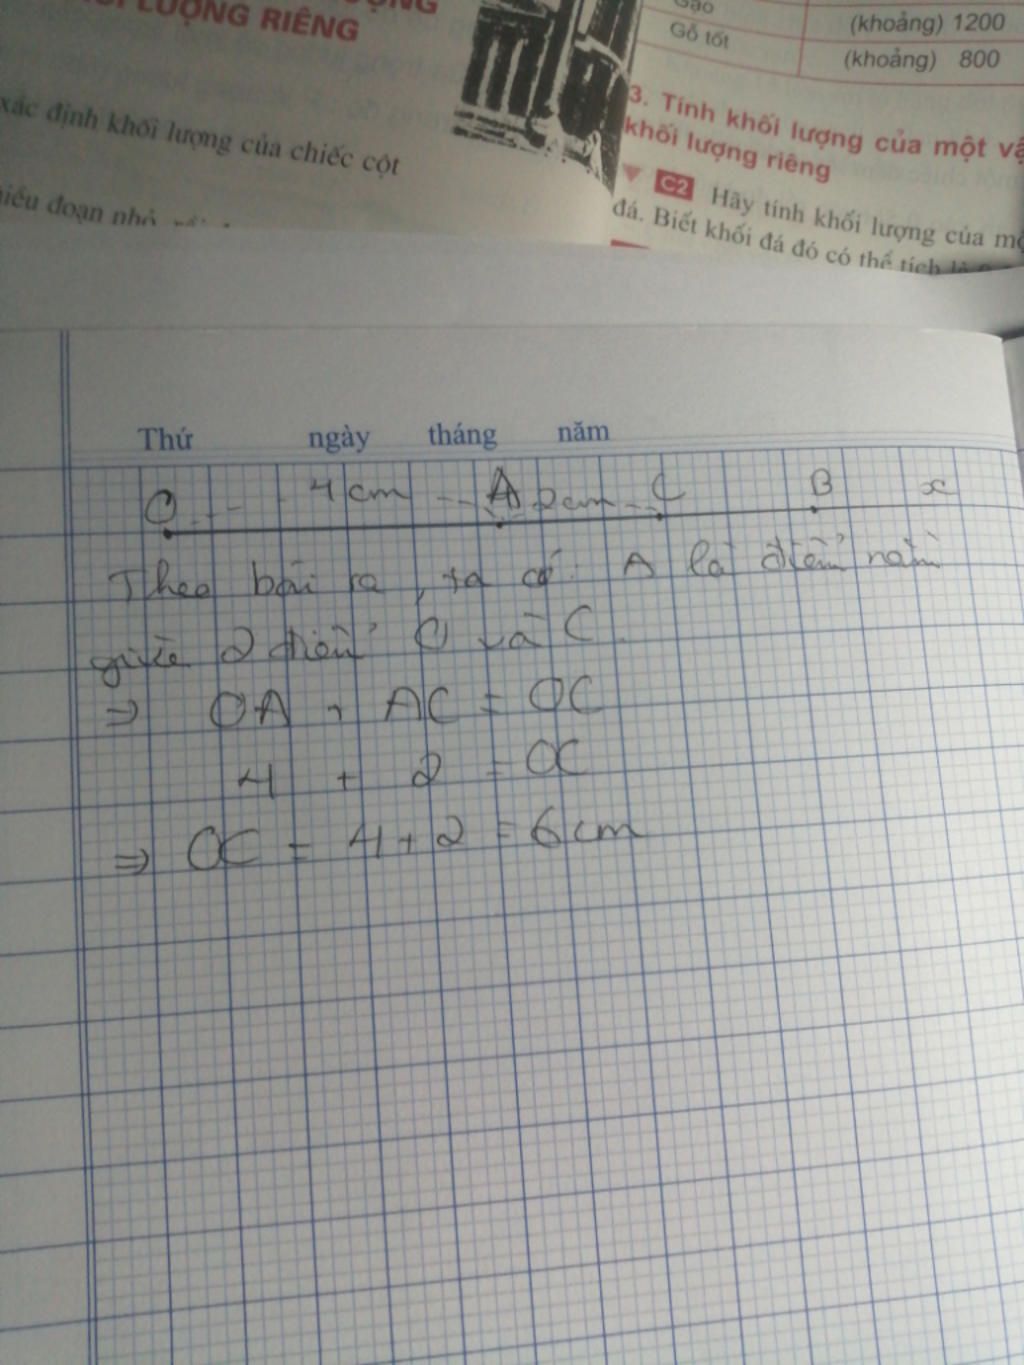 LƯỢNG RIÊNG
xác định khối lượng của chiếc cột
đoạn nhỏ
Gạo (khoảng) 1200
Gỗ tốt (khoảng) 800
3. Tính khối lượng của một
khối lượng riêng
C2 Hãy tính khối lượng của
đá. Biết khối đá đó có thể tích
Thứ ngày tháng năm
O 4cm A 2cm C B x
Theo bài ra, ta có: A là điểm nằm
giữa 2 điểm O và C
⇒ OA + AC = OC
4 + 2 = OC
⇒ OC = 4+2 = 6cm